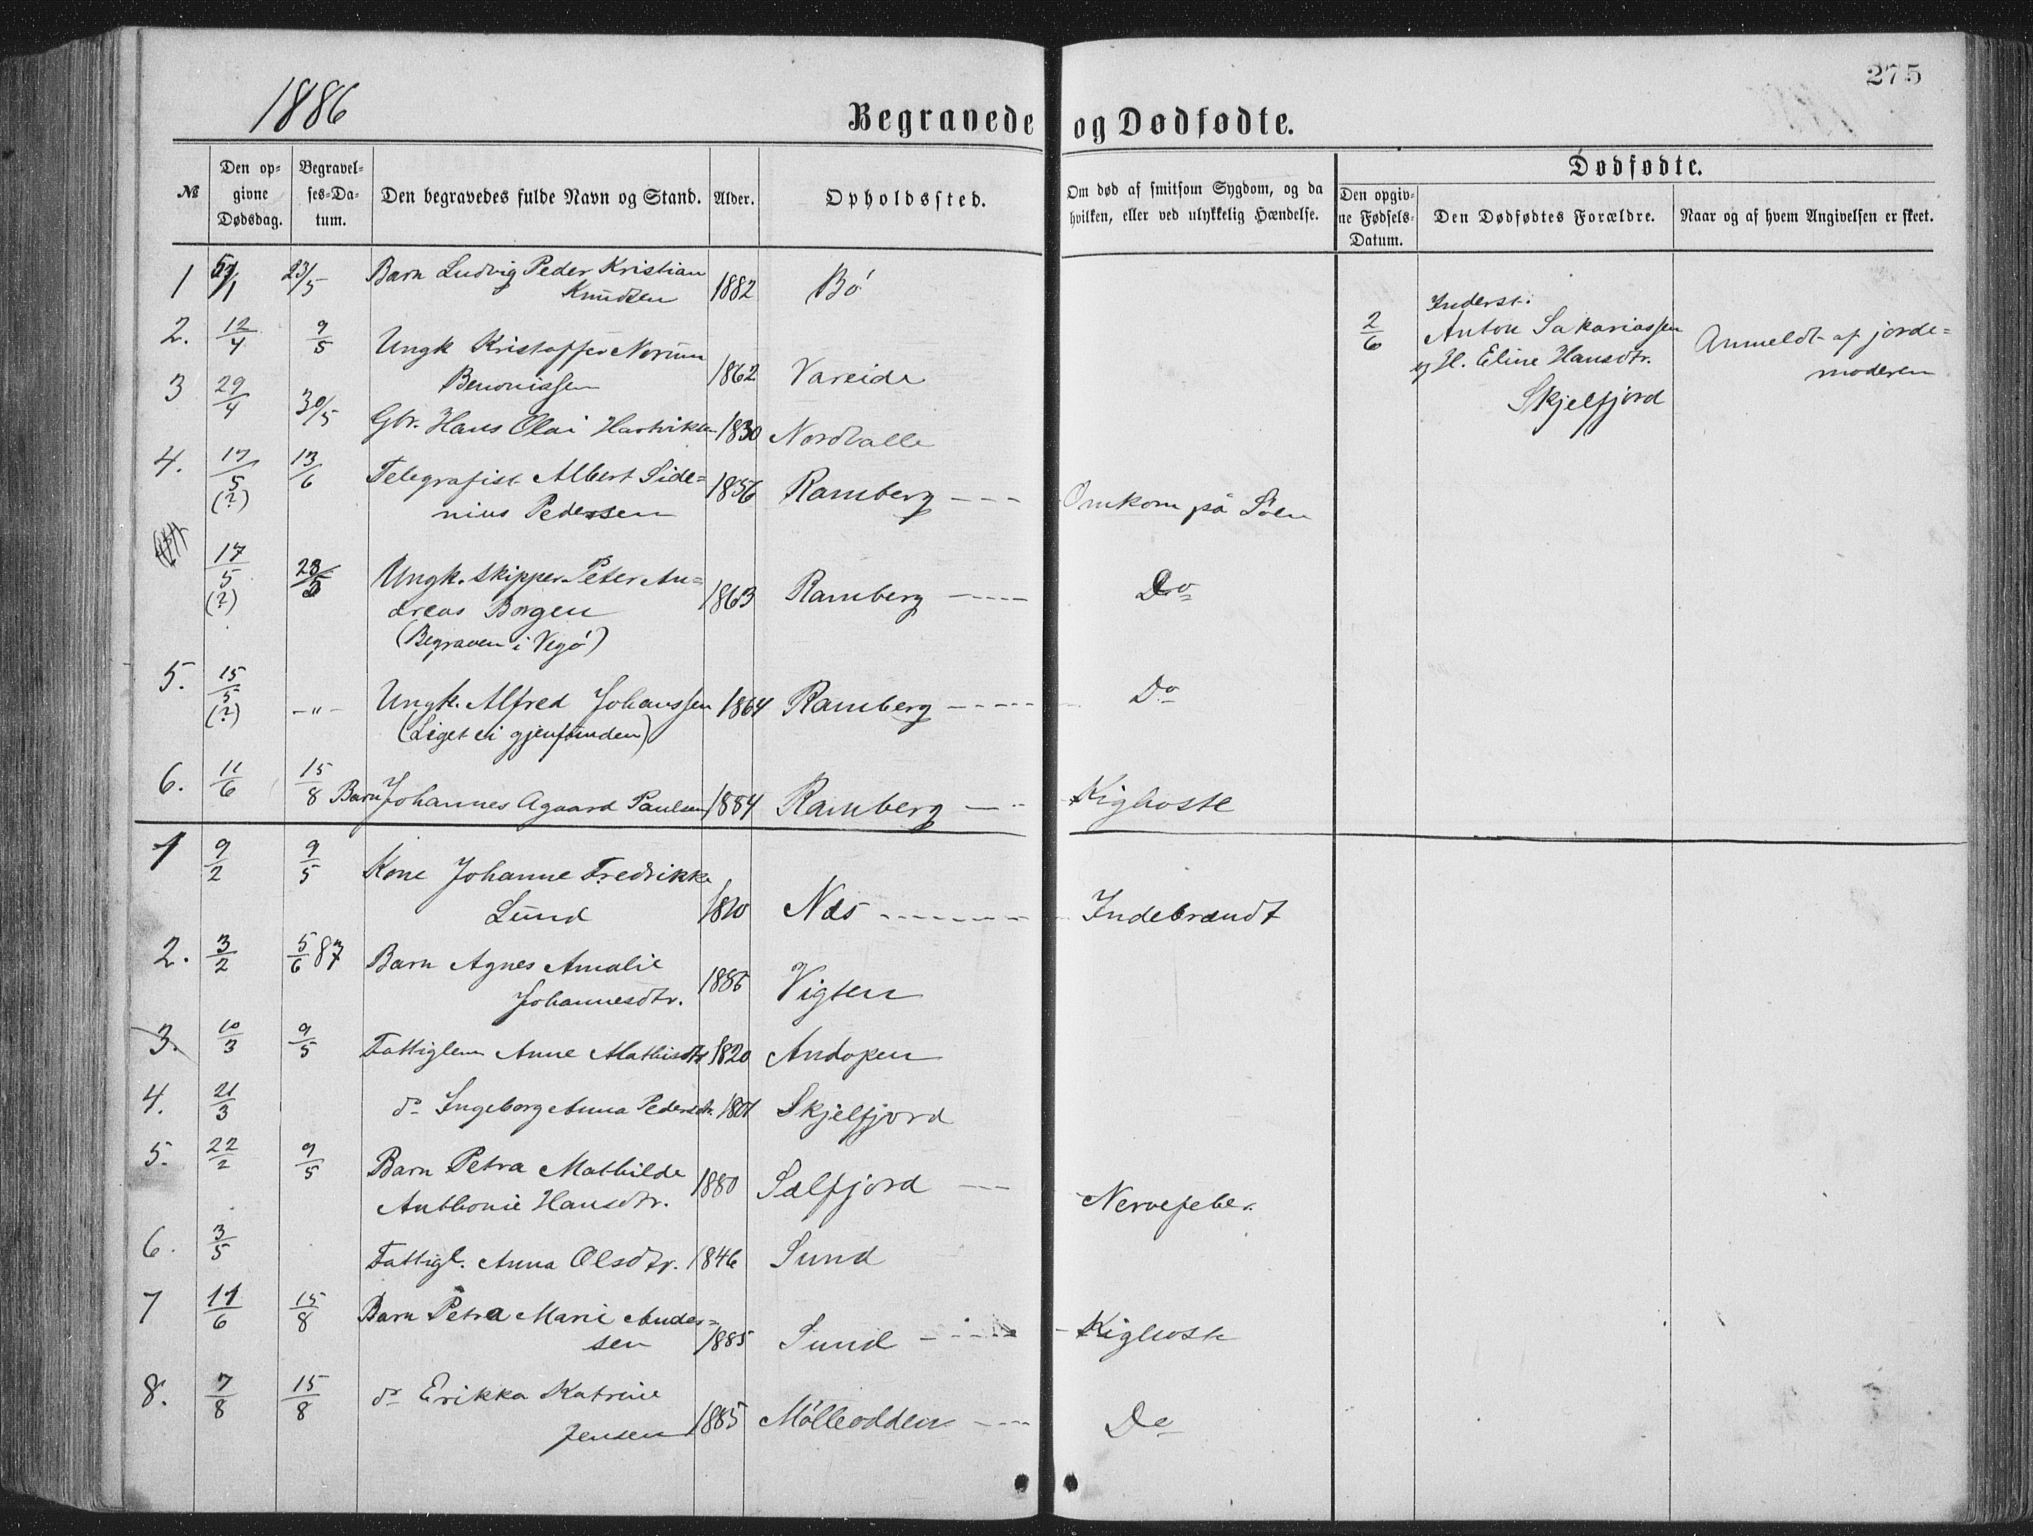 275
1886
Begravede og Dødfødte.
№
Den opgivne Dødsdag.
Begravelses-Datum.
Den begravedes fulde Navn og Stand.
Alder.
Opholdssted.
Om død af smitsom Sygdom, og da hvilken, eller ved ulykkelig Hændelse.
Dødfødte.
Den opgivne Fødsels-Datum.
Den Dødfødtes Forældre.
Naar og af hvem Angivelsen er skeet.
1 23/5 Barn Ludvig Peder Kristian
Knudsen 1882 Bø
2. 12/4 9/5 Ungk Kristoffer Norum
Benoniassen 1862 Vareide
3 29/4 30/5 Gbr. Hans Olai Hartviksen 1830 Nordvalle
4. 17/5 (?) 13/6 Telegrafist Albert Side=
nius Pedersen 1856 Ramberg Omkom på Söen
17/5 (?) 23/5 Ungk. skipper Peter An=
dreas Borgen 1863 Ramberg Do
(Begraven i Vegø)
5. 15/5 (?) -"- Ungk. Alfred Johanssen 1864 Ramberg Do
(Liget ei gjenfunden)
6. 11/6 15/8 Barn Johannes Agaard Paulsen 1884 Ramberg Kighoste
2/6 Inderst.
Anton Sakariassen
og H. Eline Hansdtr.
Skjelfjord
Anmeldt af jorde=
moderen
1 9/2 9/5 Kone Johanne Fredrikke
Lund 1810 Næs Indebrændt
2. 3/2 5/6 87 Barn Agnes Amalie
Johannesdtr. 1886 Vigten
3. 10/3 9/5 Fattiglem Anne Mathisdtr 1820 Andopen
4. 21/3 do Ingeborg Anna Pedersdtr. 1801 Skjelfjord
5. 22/2 9/5 Barn Petra Mathilde
Anthonie Hansdtr. 1880 Selfjord Nervefeber
6. 3/5 Fattigl. Anna Olsdtr. 1846 Sund
7 11/6 15/8 Barn Petra Marie Ander=
sen 1885 Sund Kighoste
8. 7/8 15/8 do Erikka Katrine
Jensen 1885 Mølleodden Do